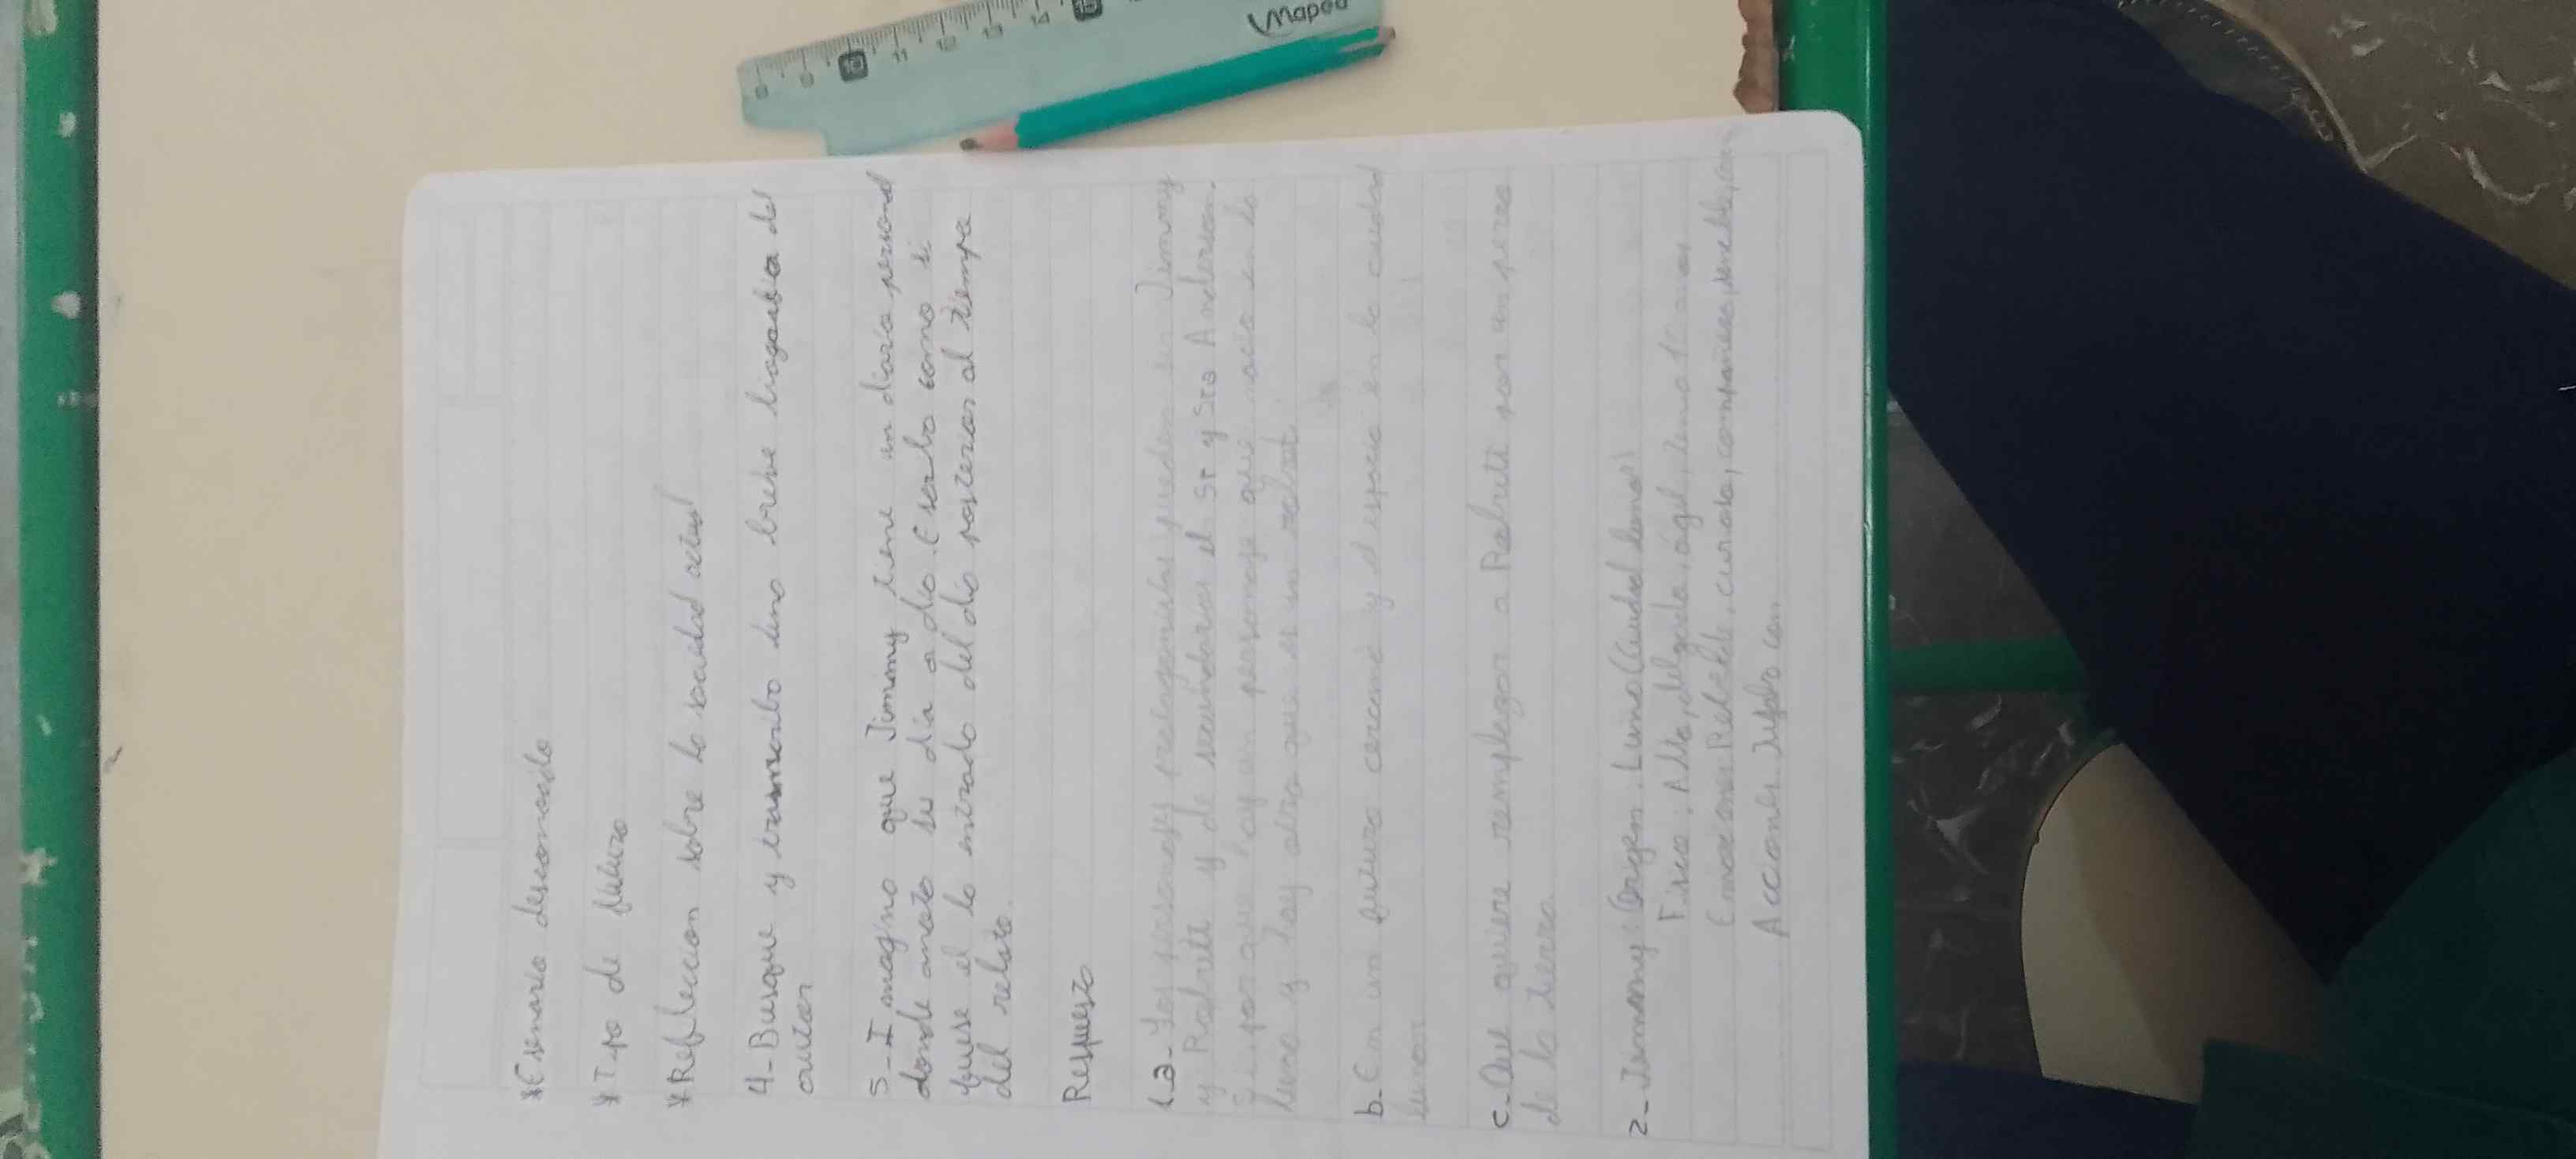 *Esenario desconocido
* Tipo de futuro
*Refleccion sobre la sociedad actual
4_Busque y transcriba una breve biografia del
autor
5_Imagino que Jimmy tiene un diario personal
donde anota su día a día. Escriba como si
fuese el la entrada del día posterior al tiempo
del relato.
Respuesta
1.a_Los personajes protagonistas pueden ser Jimmy
y Robutt y de secundarios el Sr y Sra Anderson.
Si, porque hay un personaje que nacio en la
luna y hay otro que es un robot
b_En un futuro cercano y el espacio en la ciudad
lunar
c_Que quiere remplazar a Robutt por un perro
de la tierra
2_Jimmy: Origen: Luna (Ciudad lunar)
Fisico: Alto, delgado, ágil, tenia 10 años
Emociones: Rebelde, curioso, compañero, sencible,
Acciones: Jugaba con
8 9 10 11 12 13 14 15
Maped